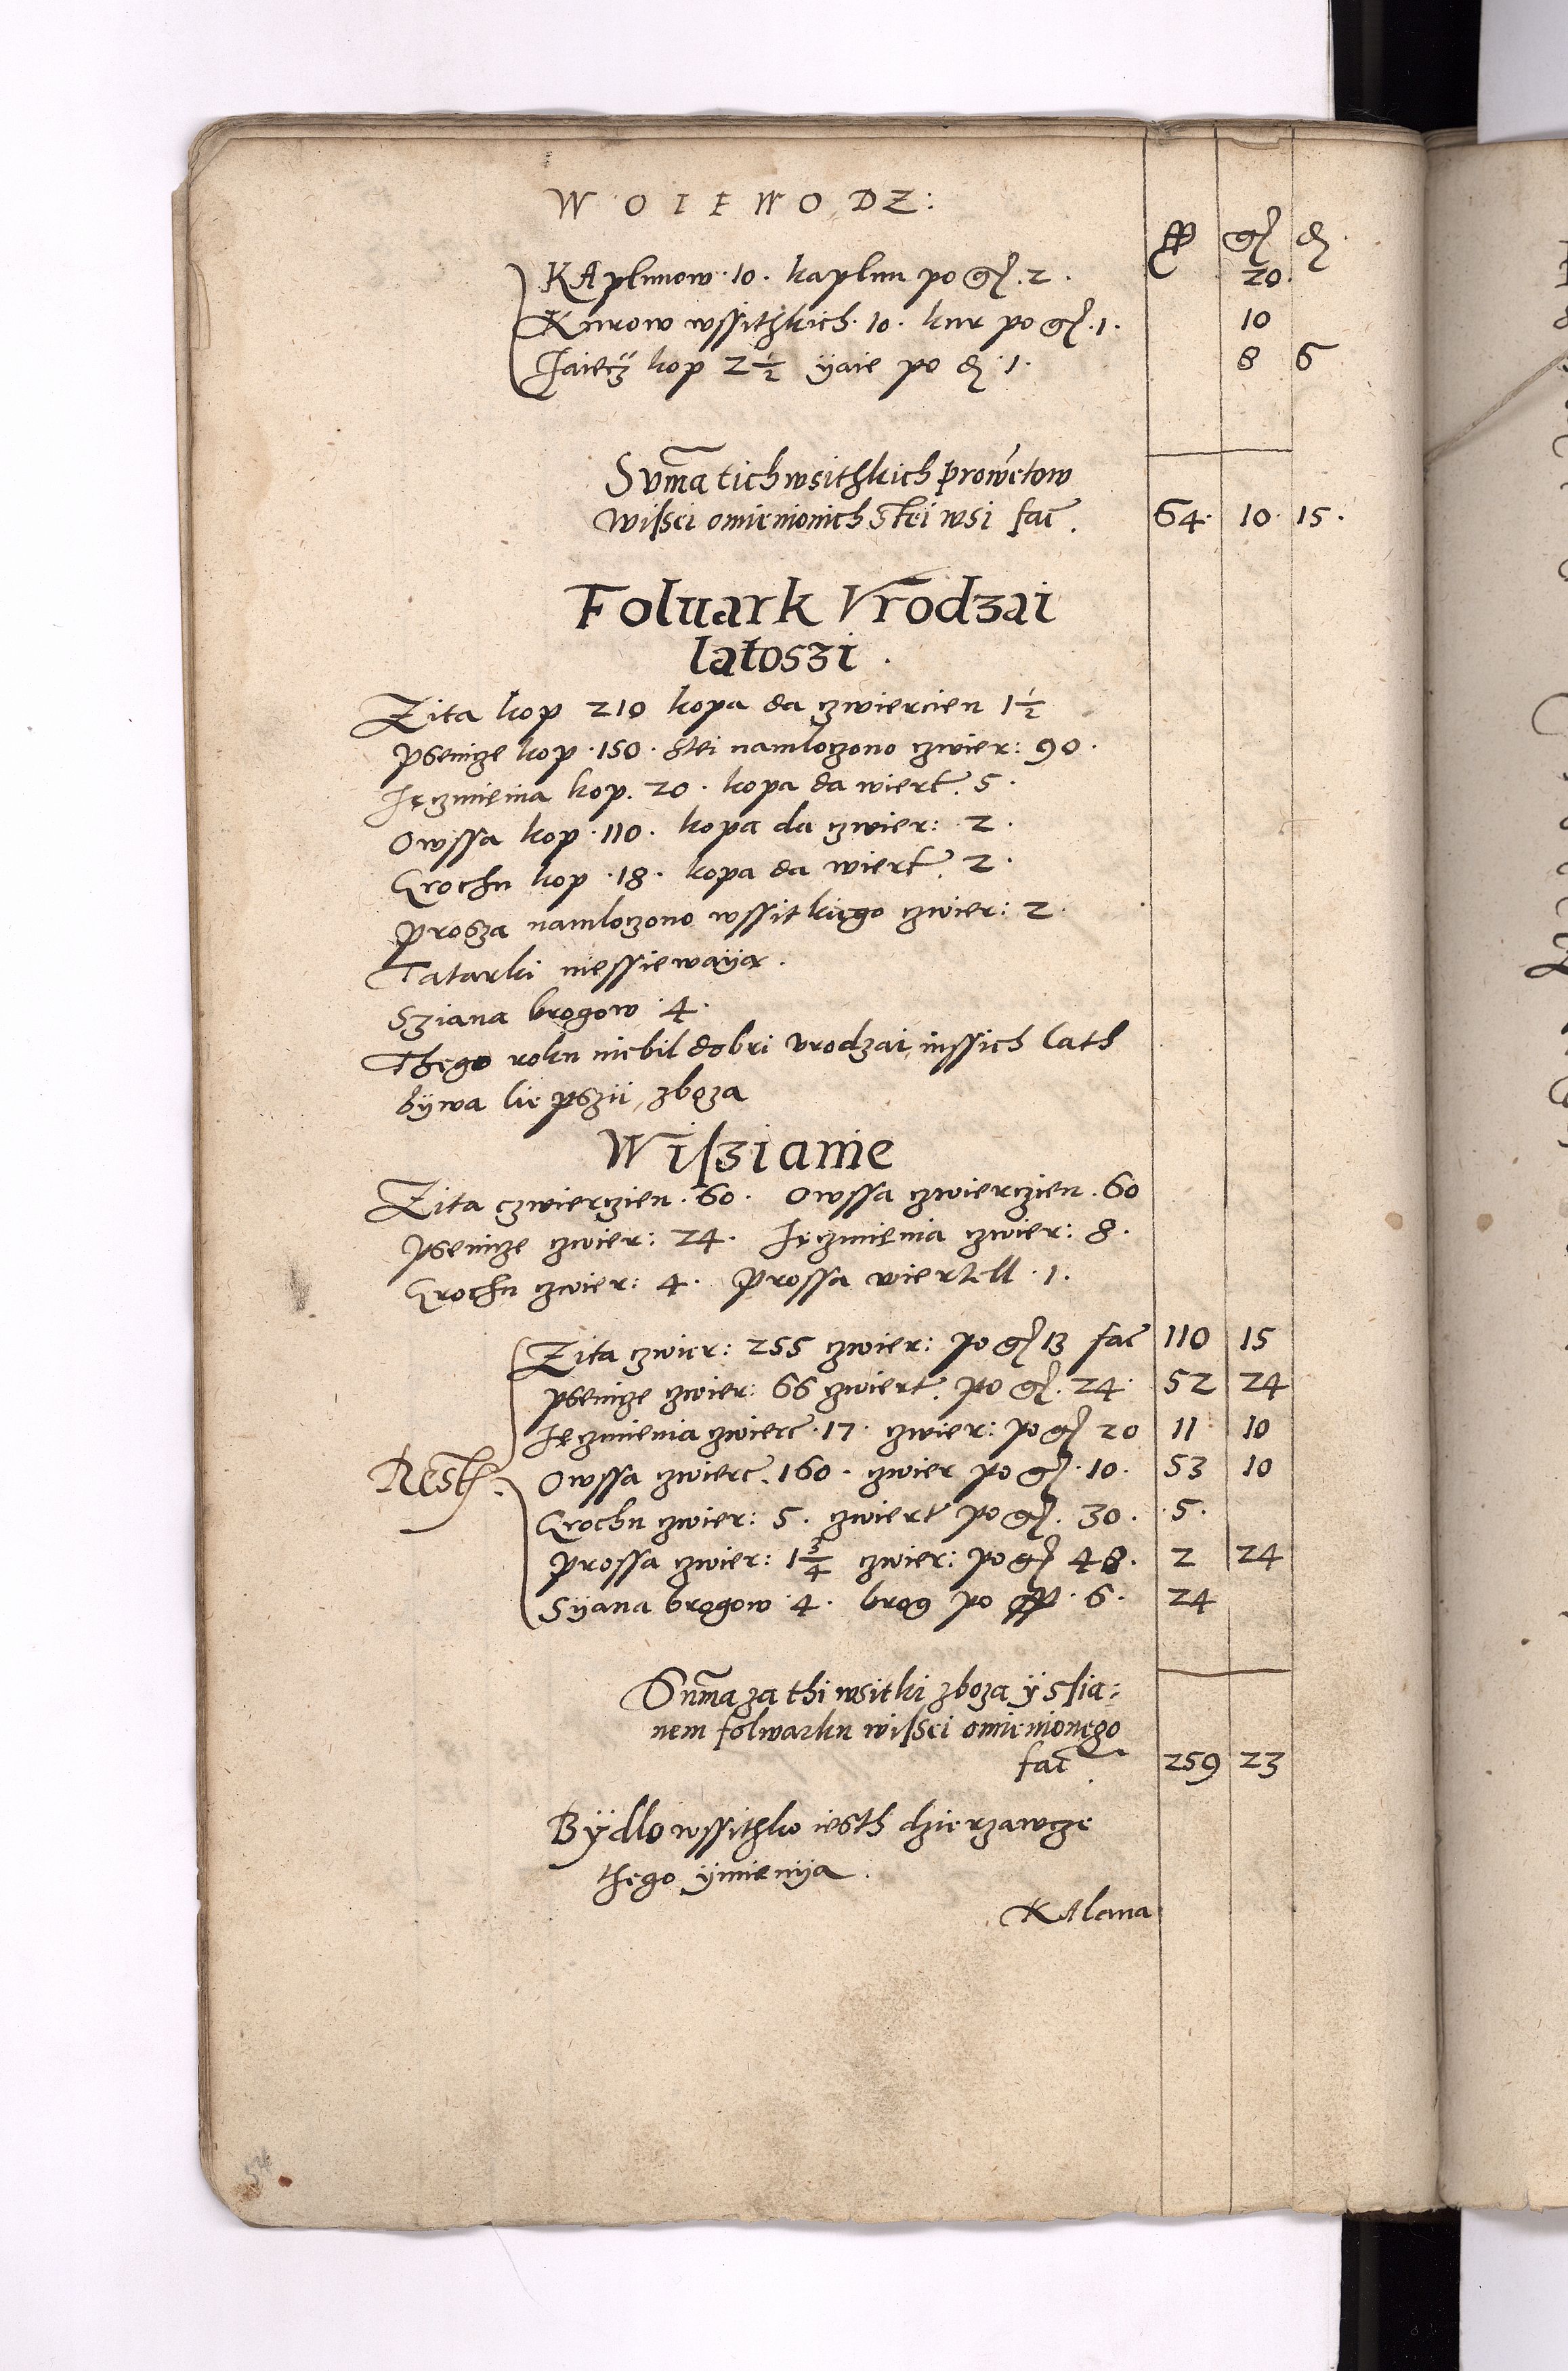 WOIEWODZ:
ff gſ ₰
KAplunow 10. kaplun po gſ. 2. 20.
Kurow wssithkich. 10. kur po gſ. 1. 10
Jaiecz kop 2 1/2 ÿaie po ₰ 1. 8 6
Sum̄a tich wsithkich prowētow
wiſsei omienionich Stei wsi fac̄. 64. 10. 15.
Foluark Vrodzai
latoszi.
Zita kop 210 kopa da czwiercien 1 1/2
psenicze kop. 150. Stei namloczono czwier: 90.
Jęczmienia kop. 20. kopa da wiert. 5.
Owssa kop. 110. kopa da czwier: 2.
Grochu kop. 18. kopa da wiert. 2.
prosza namloczono wssitkiego czwier: 2.
Tatarki niessiewaÿą.
Sziana brogow 4.
Thego roku niebil dobri vrodzai, inssich lath
bÿwa liepszii zboza
Wiſzianie
Zita czwierczien. 60. Owssa czwierczien. 60
psenicze czwier: 24. Jęczmienia czwier: 8.
Grochu czwier: 4. Prossa wiertell. 1.
Zita czwier: 255 czwier: po gſ 13 fac̄ 110 15
psenicze czwier: 66 czwiert. po gſ. 24. 52 24
Jęczmienia czwierc. 17. czwier: po gſ 20 11 10
Resth. Owssa czwierc. 160. czwier po gſ. 10. 53 10
Grochu czwier: 5. czwiert po gſ. 30. 5.
prossa czwier: 1 3/4 czwier: po gſ 48. 2 24
Sÿana brogow 4. brog po ff. 6. 24
Sum̄a za thi wsitki zboza ÿ sſia-
nem folwarku wiſsei omienionego
fac̄. 259 23
Bÿdlo wssithko iesth dzierzawcze
thego ÿmienÿa.
KAlena
54